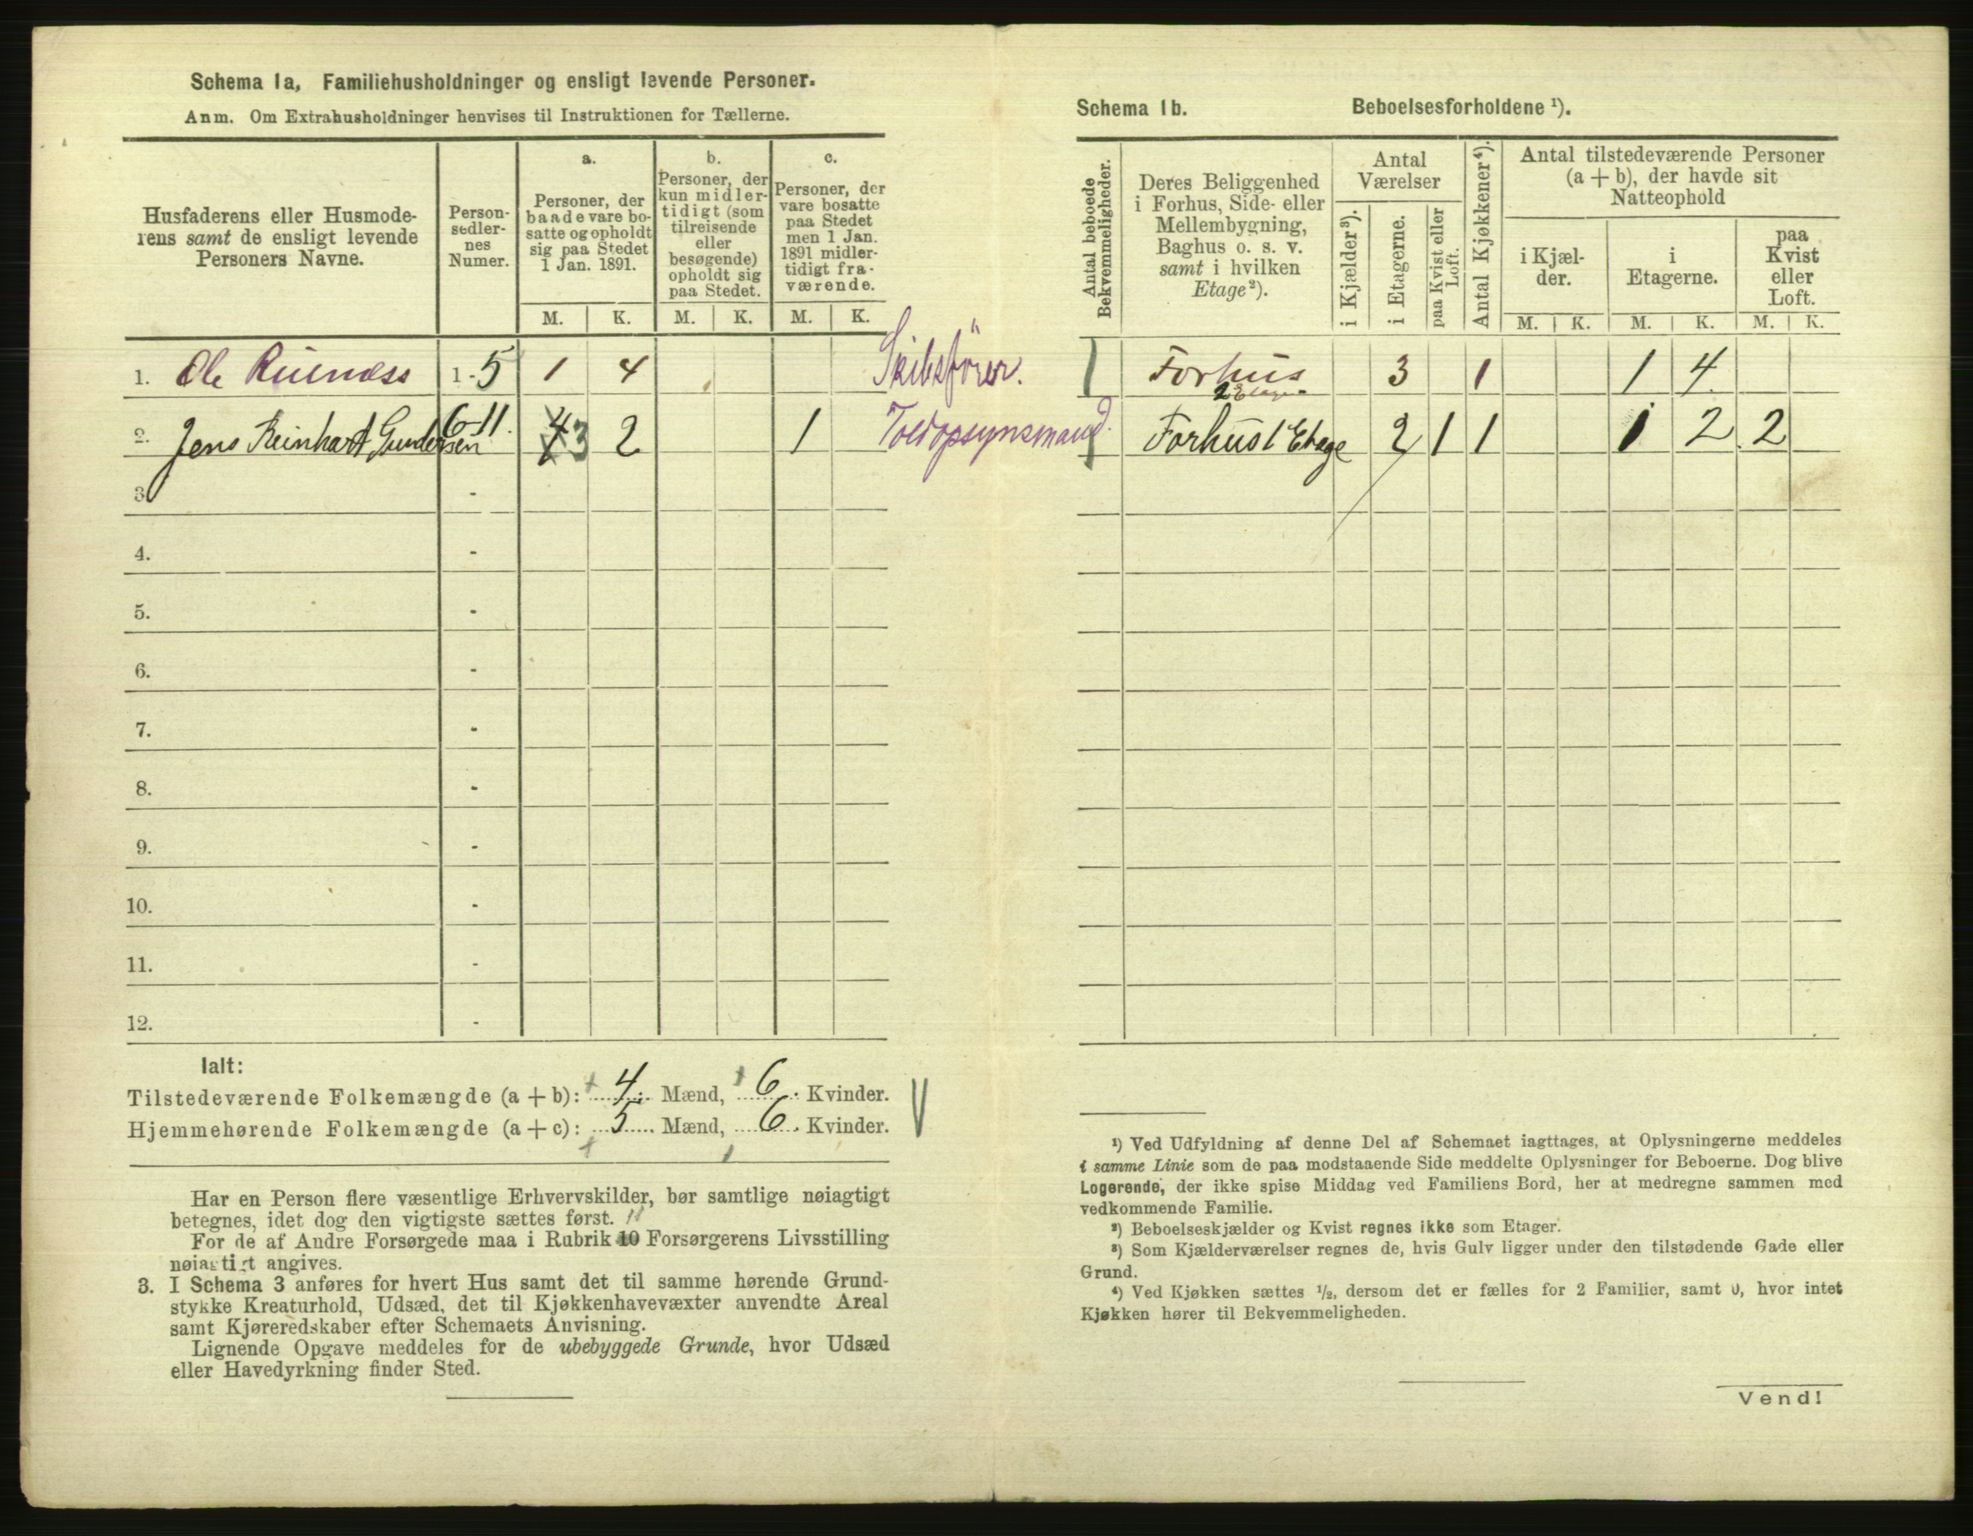 Schema 1a, Familiehusholdninger og ensligt levende Personer.
Anm. Om Extrahusholdninger henvises til Instruktionen for Tællerne.
Husfaderens eller Husmode-
rens samt de ensligt levende
Personers Navne.
Person-
sedler-
nes
Numer.
a.
Personer, der
baade vare bo-
satte og opholdt
sig paa Stedet
1 Jan. 1891.
b.
Personer, der
kun midler-
tidigt (som
tilreisende
eller
besøgende)
opholdt sig
paa Stedet.
c.
Personer, der
vare bosatte
paa Stedet
men 1 Jan.
1891 midler-
tidigt fra-
værende.
M. K. M. K. M. K.
1. Ole 1-5 1 4 Skibsfører.
2. Jens Reinhart Gundersen 6-11. 4 3 2 1 Toldopsynsmand.
3. -
4. -
5. -
6. -
7. -
8. -
9. -
10. -
11. -
12. -
Ialt:
Tilstedeværende Folkemængde (a + b): 4 Mænd, 6 Kvinder.
Hjemmehørende Folkemængde (a + c): 5 Mænd, 6 Kvinder.
Har en Person flere væsentlige Erhvervskilder, bør samtlige nøiagtigt
betegnes, idet dog den vigtigste sættes først.
For de af Andre Forsørgede maa i Rubrik 10 Forsørgerens Livsstilling
nøiagtigt angives.
3. I Schema 3 anføres for hvert Hus samt det til samme hørende Grund-
stykke Kreaturhold, Udsæd, det til Kjøkkenhavevæxter anvendte Areal
samt Kjøreredskaber efter Schemaets Anvisning.
Lignende Opgave meddeles for de ubebyggede Grunde, hvor Udsæd
eller Havedyrkning finder Sted.
Schema 1b. Beboelsesforholdene ¹).
Antal beboede
Bekvemmeligheder.
Deres Beliggenhed
i Forhus, Side- eller
Mellembygning,
Baghus o. s. v.
samt i hvilken
Etage²).
Antal
Værelser
i Kjælder³).
i Etagerne.
paa Kvist eller
Loft.
Antal Kjøkkener⁴).
Antal tilstedeværende Personer
(a + b), der havde sit
Natteophold
i Kjæl-
der.
i
Etagerne.
paa
Kvist
eller
Loft.
M. K. M. K. M. K.
1 Forhus 3 1 1 4
2 Etage
1 Forhus 1 Etage 2 1 1 1 2 2
¹) Ved Udfyldning af denne Del af Schemaet iagttages, at Oplysningerne meddeles
i samme Linie som de paa modstaaende Side meddelte Oplysninger for Beboerne. Dog blive
Logerende, der ikke spise Middag ved Familiens Bord, her at medregne sammen med
vedkommende Familie.
²) Beboelseskjælder og Kvist regnes ikke som Etager.
³) Som Kjælderværelser regnes de, hvis Gulv ligger under den tilstødende Gade eller
Grund.
⁴) Ved Kjøkken sættes ½, dersom det er fælles for 2 Familier, samt 0, hvor intet
Kjøkken hører til Bekvemmeligheden.
Vend!